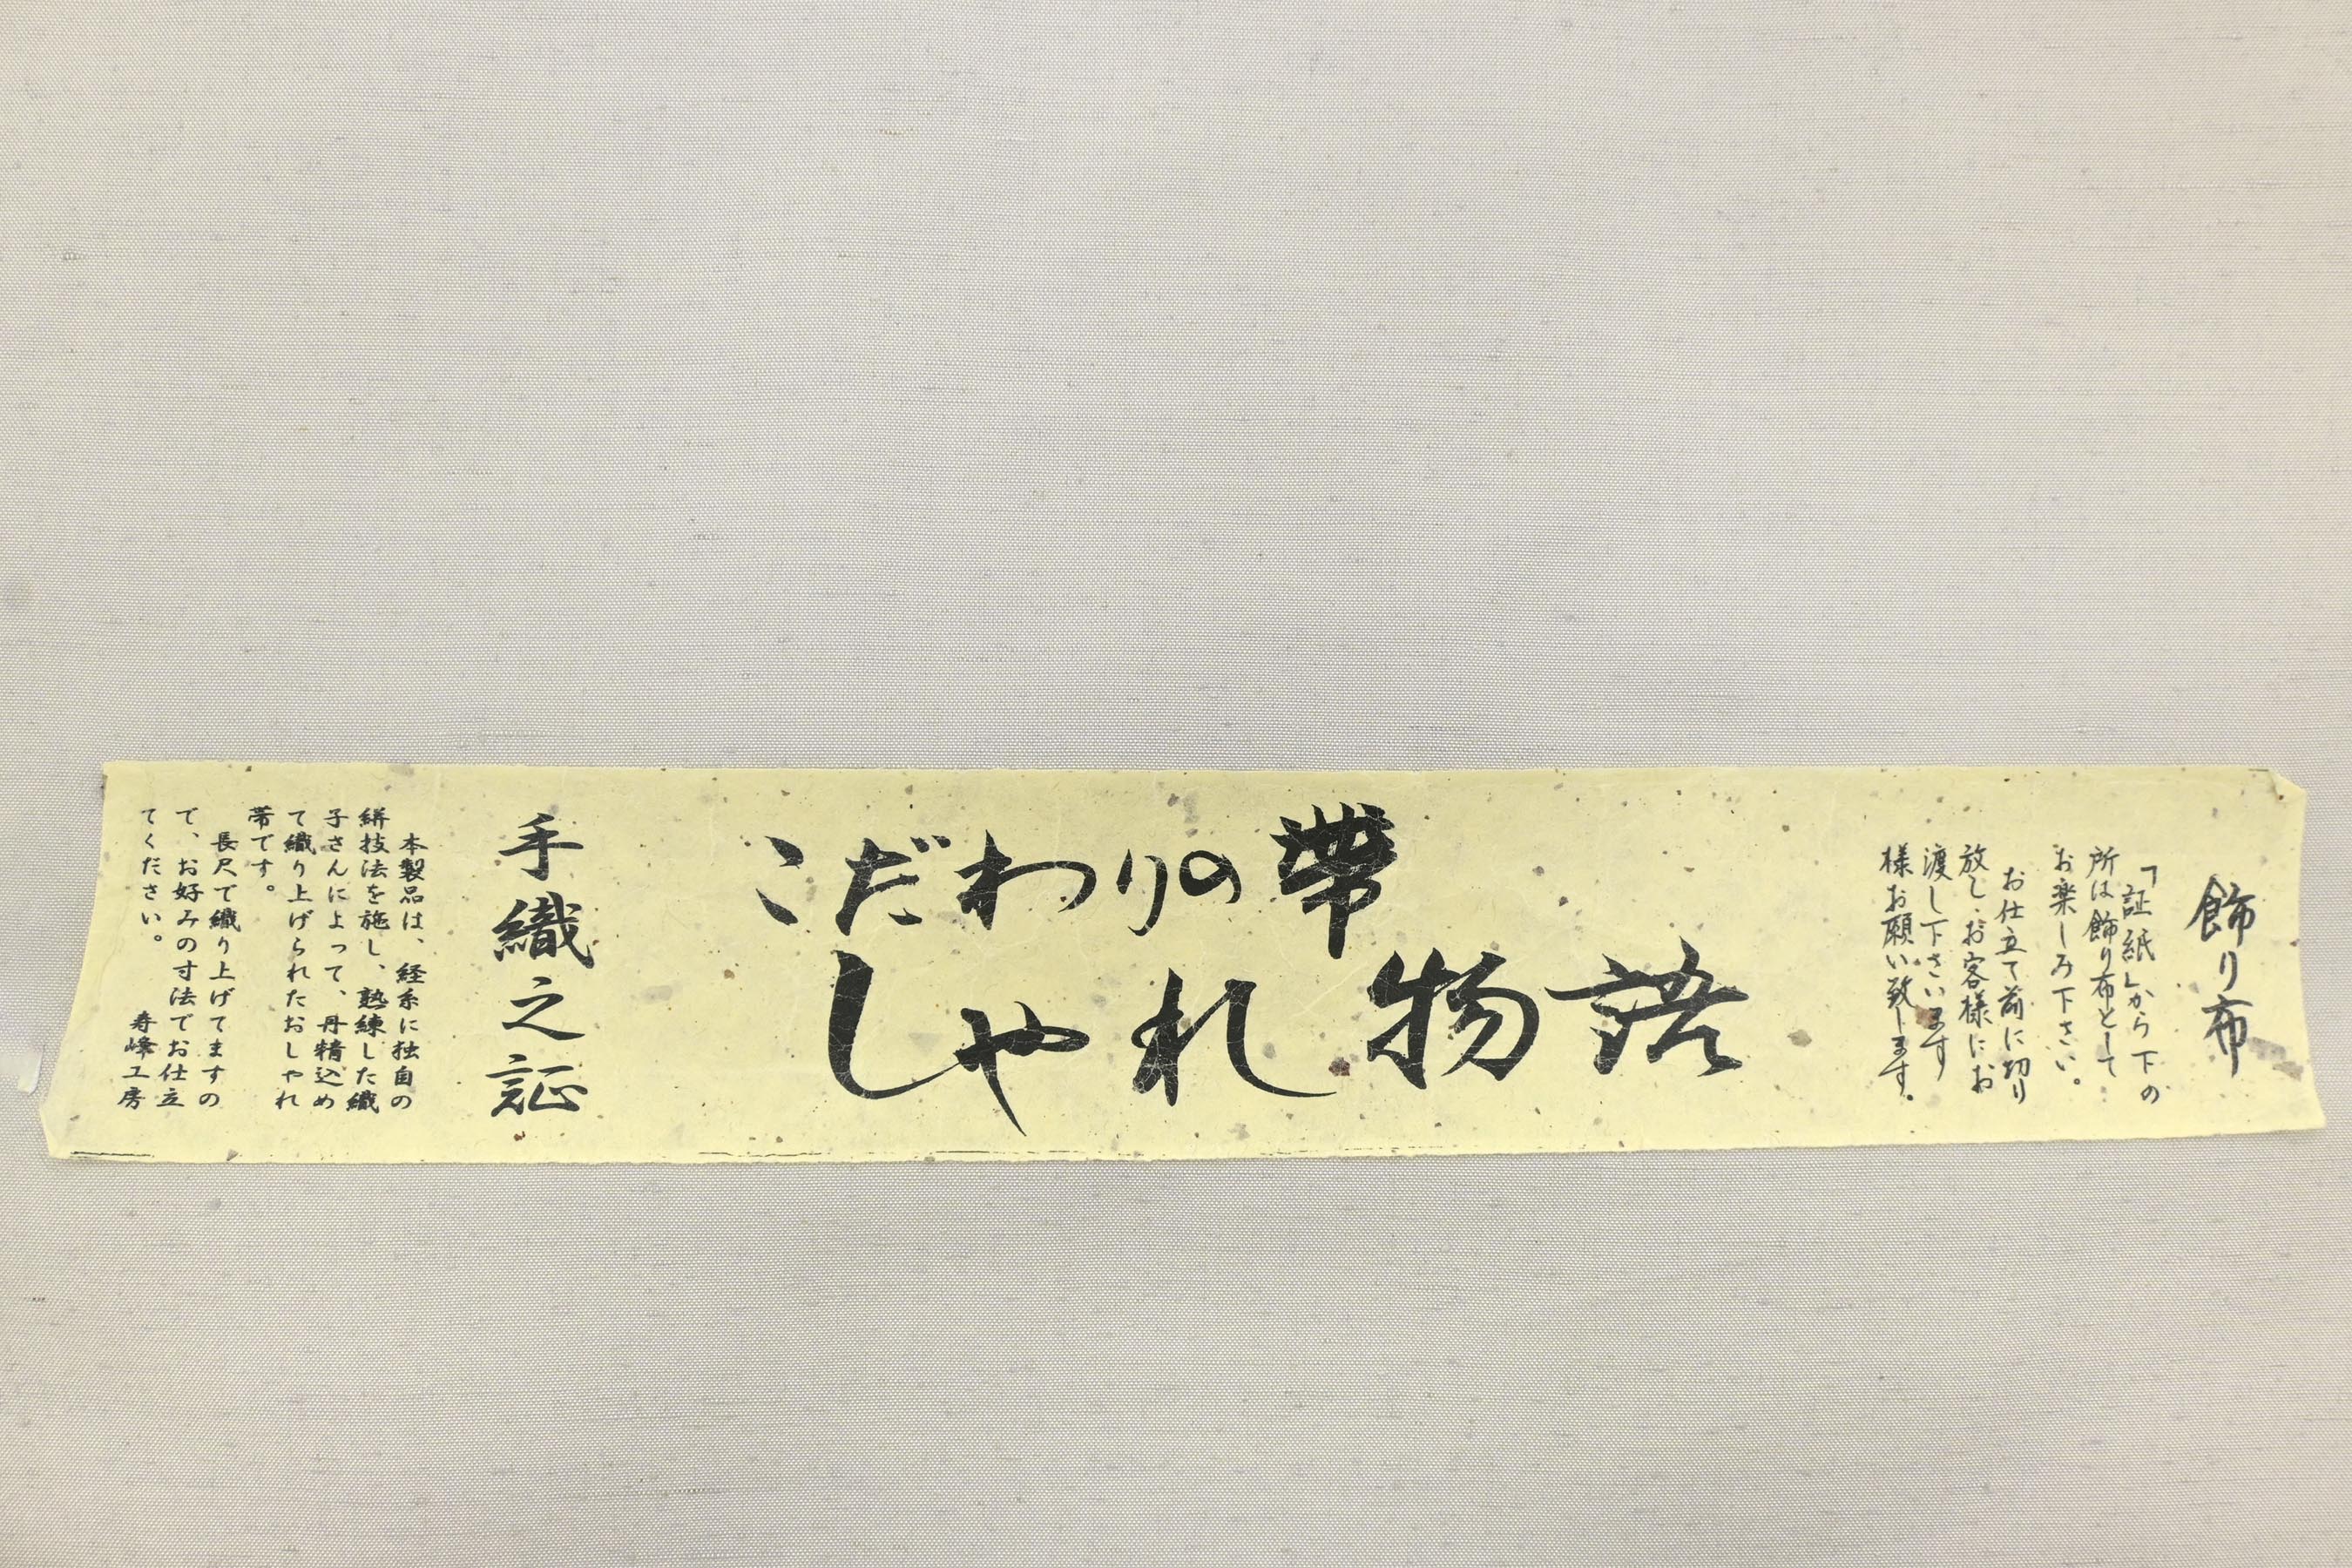 飾り布
「証紙」から下の
所は飾り布として
お楽しみ下さい。
お仕立て前に切り
放し、お客様にお
渡し下さいます
様お願い致します。
こだわりの帶
しゃれ物語
手織之証
本製品は、経糸に独自の
絣技法を施し、熟練した織
子さんによって、丹精込め
て織り上げられたおしゃれ
帯です。
長尺で織り上げてますの
で、お好みの寸法でお仕立
てください。
寿峰工房